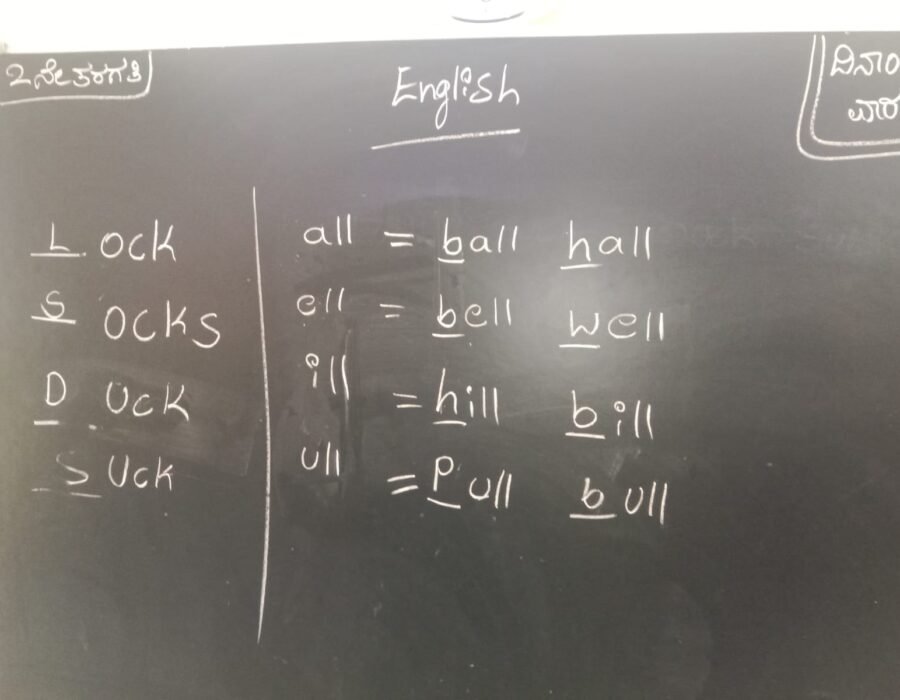 2ನೇ ತರಗತಿ
English
L ock
S ocks
D uck
S uck
all = ball hall
ell = bell well
ill = hill bill
ull = Pull bull